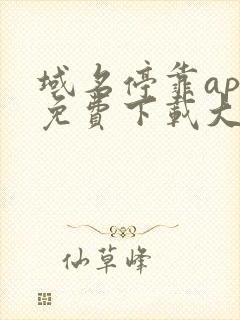 域名停靠ap
免费下載大
仙草峰